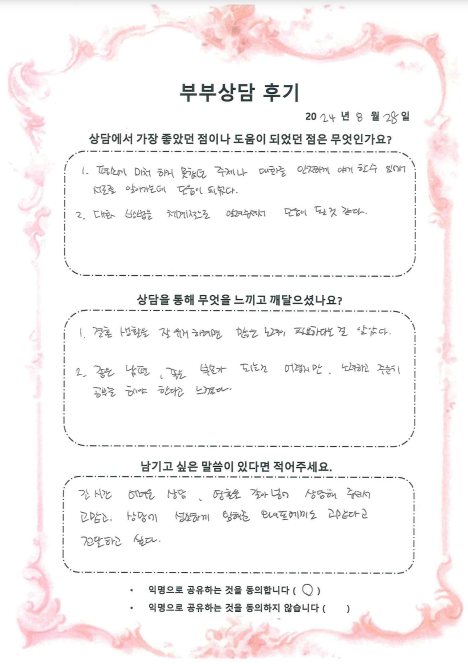 부부상담 후기
2024 년 8 월 28일
상담에서 가장 좋았던 점이나 도움이 되었던 점은 무엇인가요?
1. 평소에 미처 하지 못했던 주제나 대화를 안전하게 얘기 할 수 있어서
서로를 알아가는데 도움이 되었다.
2. 대화 방법을 체계적으로 알려주셔서 도움이 될 것 같다.
상담을 통해 무엇을 느끼고 깨달으셨나요?
1. 결혼 생활을 잘 유지하려면 많은 노력이 필요하다는걸 알았다.
2. 좋은 남편, 좋은 부모가 되는건 어렵지만, 노력하고 꾸준히
공부를 해야 한다고 느꼈다.
남기고 싶은 말씀이 있다면 적어주세요.
긴 시간 상담, 상담해 주셔서
고맙고, 상담에 성실하게 와이프에게도 고맙다고
전하고 싶다.
• 익명으로 공유하는 것을 동의합니다 ( O )
• 익명으로 공유하는 것을 동의하지 않습니다 ( )